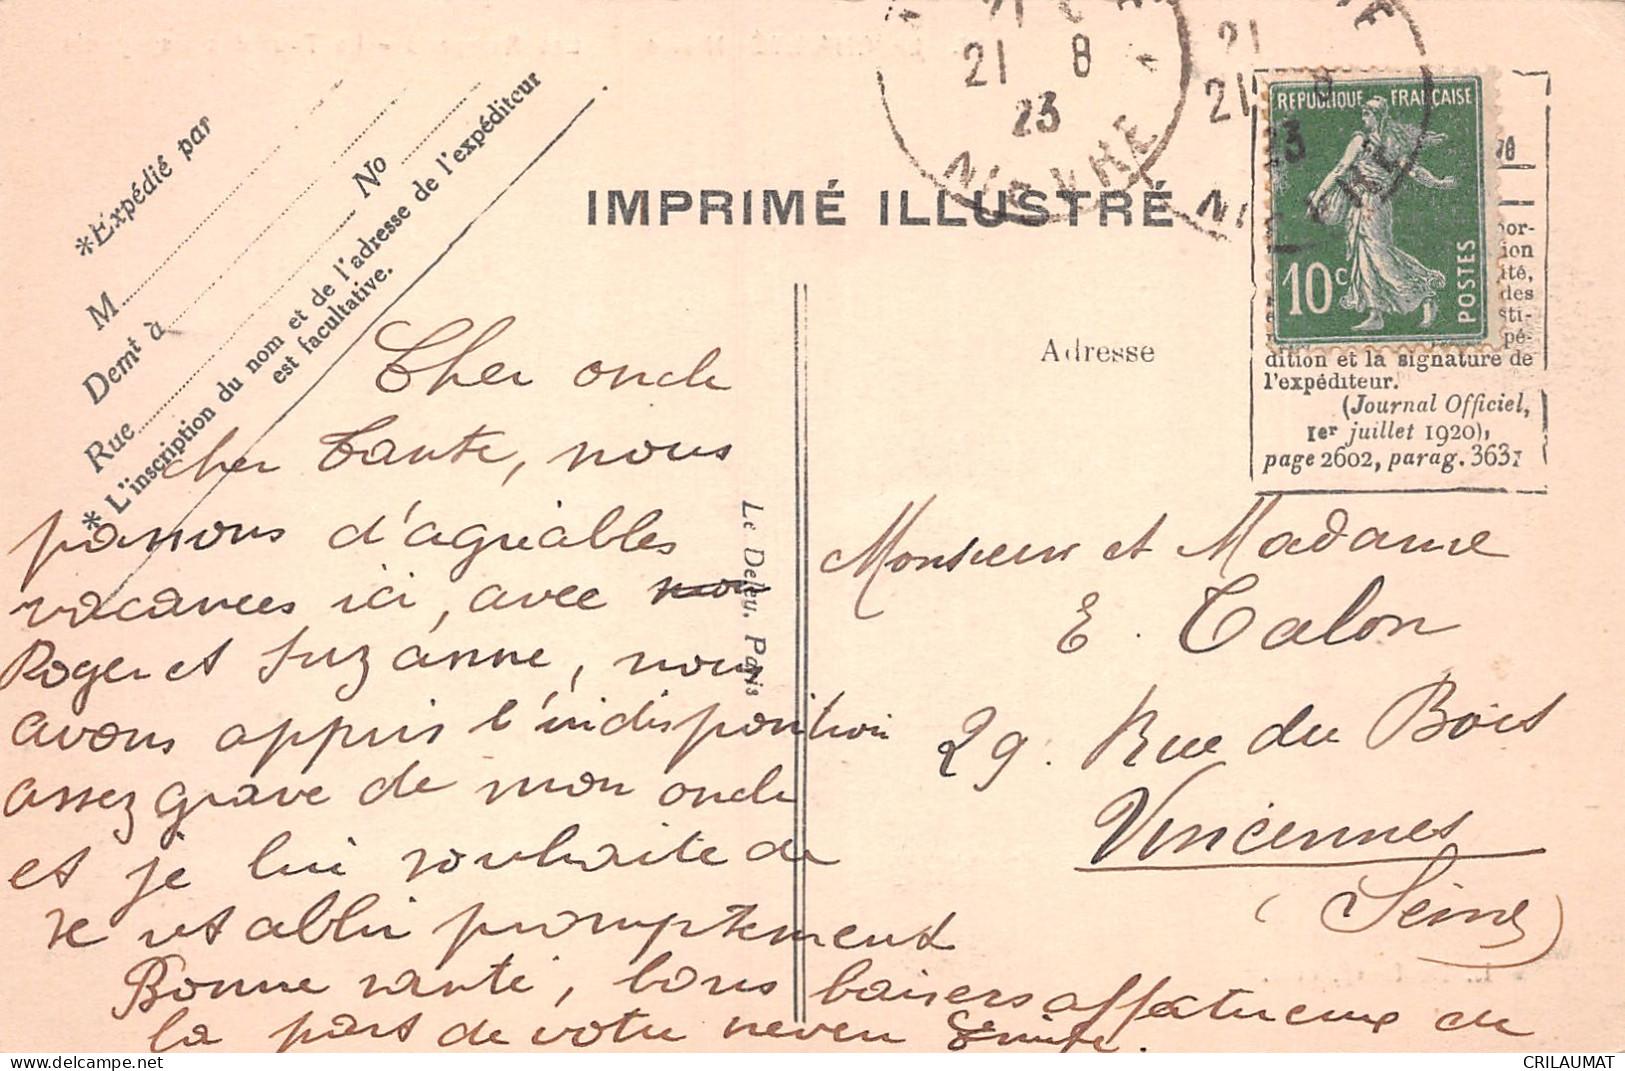 *Expédié par
M
Demt à
Rue
No
* L'inscription du nom et de l'adresse de l'expéditeur
est facultative.
IMPRIMÉ ILLUSTRÉ
21
21 8
23
NIÈVRE
21
21 8
23
NIÈVRE
REPUBLIQUE FRANÇAISE
10c
POSTES
78
por-
ion
ité,
des
sti-
pé-
dition et la signature de
l'expéditeur.
(Journal Officiel,
1er juillet 1920),
page 2602, parag. 363
Adresse
Le Deley, Paris
Cher oncle
cher Tante, nous
passons d'agréables
vacances ici, avec
Roger et Suzanne, nous
avons appris l'indisposition
assez grave de mon oncle
et je lui souhaite de
se rétablir promptement
Bonne santé, bons baisers affectueux de
la part de votre neveu
Monsieur et Madame
E. Talon
29. Rue du Bois
Vincennes
(Seine)
CRILAUMAT